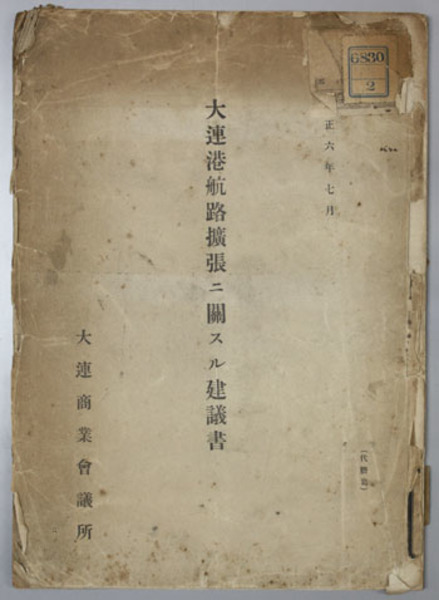 6830
2
正六年七月
大連港航路擴張ニ關スル建議書
(代謄寫)
大連商業會議所